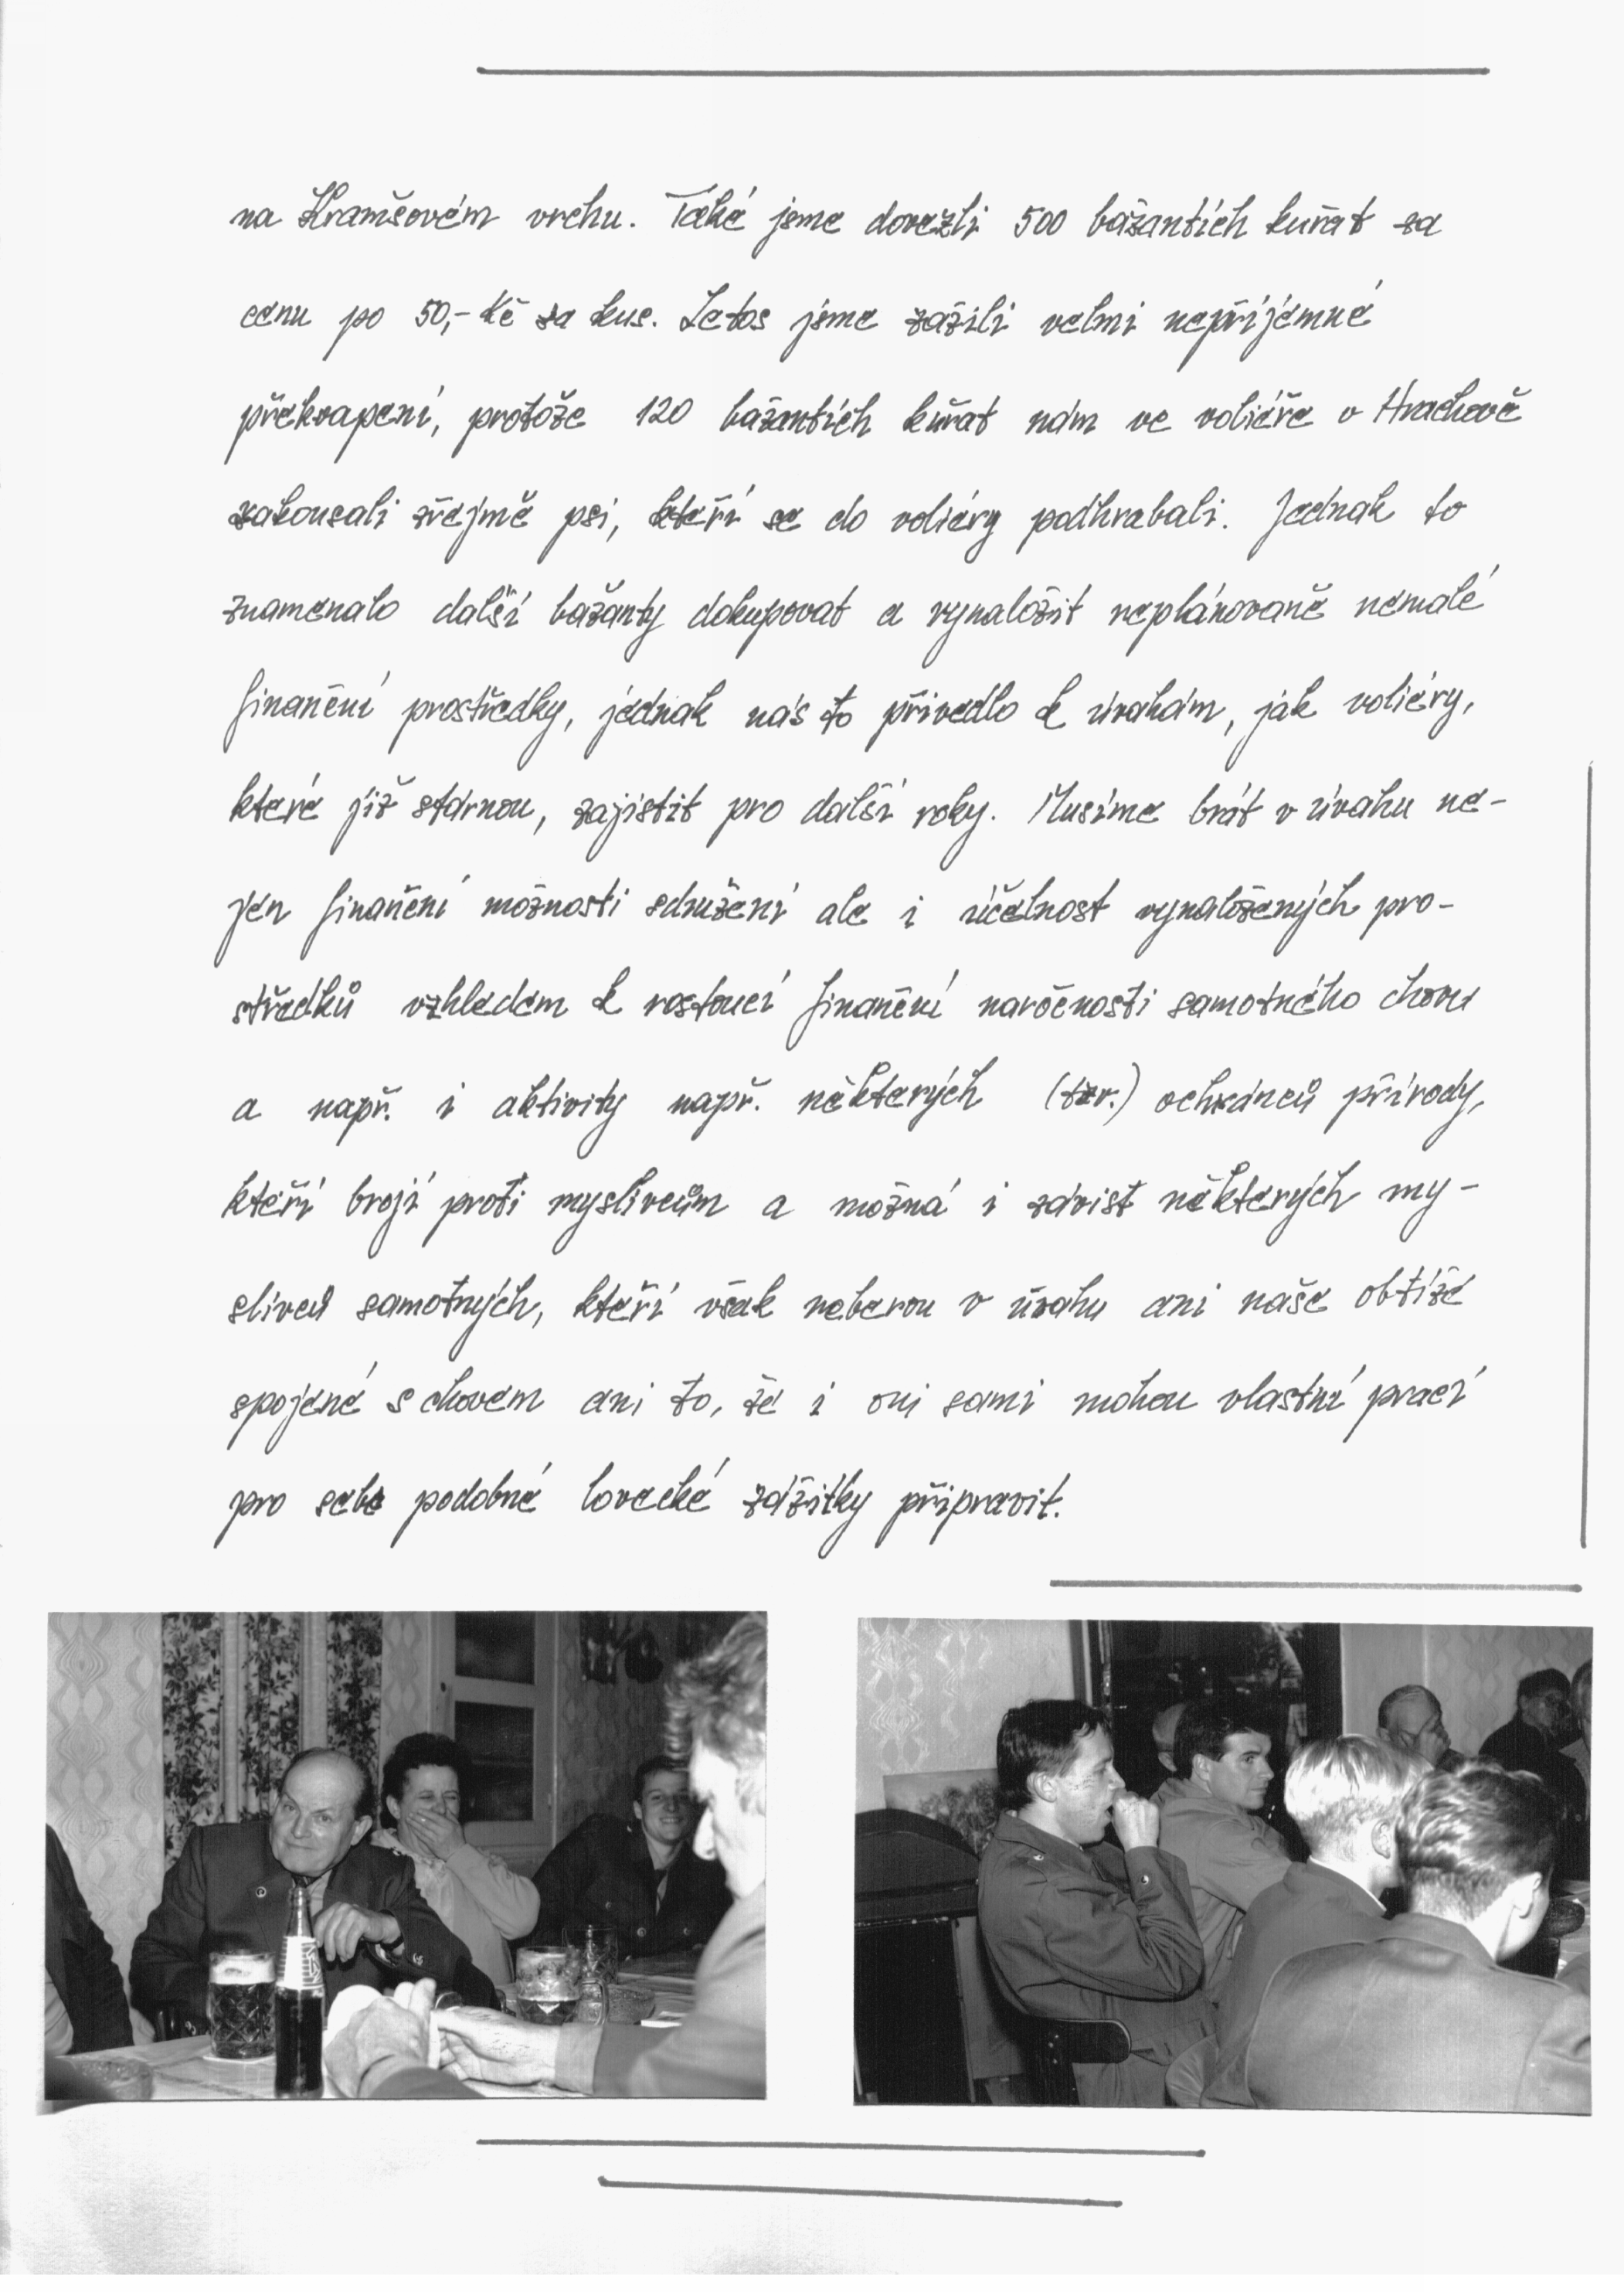 na Kramšovém vrchu. Také jsme dovezli 500 bažantích kuřat za
cenu po 50,- Kč za kus. Letos jsme zažili velmi nepříjemné
překvapení, protože 120 bažantích kuřat nám ve voliéře v Hrachově
zakousali zřejmě psi, kteří se do voliéry podhrabali. Jednak to
znamenalo další bažanty dokupovat a vynaložit neplánovaně nemalé
finanční prostředky, jednak nás to přivedlo k úvahám, jak voliéry,
které již stárnou, zajistit pro další roky. Musíme brát v úvahu ne-
jen finanční možnosti sdružení ale i účelnost vynaložených pro-
středků vzhledem k rostoucí finanční naročnosti samotného chovu
a např. i aktivity např. některých (tzv.) ochránců přírody,
kteří brojí proti myslivcům a možná i závist některých my-
slivců samotných, kteří však neberou v úvahu ani naše obtíže
spojené s chovem ani to, že i oni sami mohou vlastní prací
pro sebe podobné lovecké zážitky připravit.